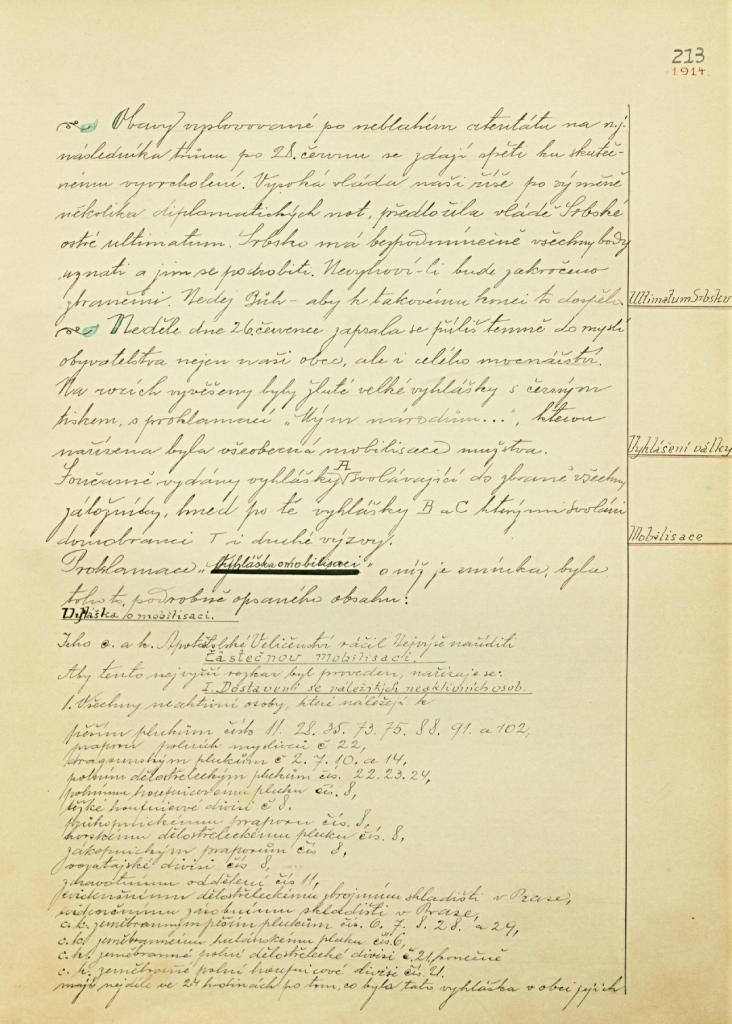 213
1914.
Obavy vyslovované po neblahém atentátu na nj.
následníka trůnu po 28. červnu se zdají spěti ku skuteč-
nému vyvrcholení. Vysoká vláda naší říše po výměně
několika diplomatických not, předložila vládě Srbské
ostré ultimatum. Srbsko má bezpodmínečně všechny body
uznati a jim se podrobiti. Nevyhoví-li bude zakročeno
zbraněmi. Nedej Bůh - aby k takovému konci to dospělo.
Ultimatum Srbsku
Neděle dne 26. července zapsala se příliš temně do myslí
obyvatelstva nejen naší obce, ale i celého mocnářství.
Na rozích vyvěšeny byly žluté velké vyhlášky s černým
tiskem, s proklamací „Mým národům...", kterou
nařízena byla všeobecná mobilisace mužstva.
Vyhlášení války
Současně vydány vyhlášky A svolávající do zbraně všechny
záložníky, hned po té vyhlášky B a C kterými svoláni
domobranci I i druhé výzvy.
Mobilisace
Proklamace „Vyhláška o mobilisaci" o níž je zmínka, byla
tohoto, podrobně opsaného obsahu:
Vyhláška o mobilisaci.
Jeho c. a k. Apoštolské Veličenství ráčil Nejvýše naříditi
Částečnou mobilisaci.
Aby tento nejvyšší rozkaz byl proveden, nařizuje se:
I. Dostavení se vojenských neaktivních osob.
1. Všechny neaktivní osoby, které náležejí k
pěším plukům číslo 11. 28. 35. 73. 75. 88. 91. a 102,
praporu polních myslivců č 22,
dragounským plukům č 2. 7. 10. a 14,
polním dělostřeleckým plukům čís. 22. 23. 24,
polnímu houfnicovému pluku čís. 8,
těžké houfnicové divisi č 8.
průkopnickému praporu čís. 8,
horskému dělostřeleckému pluku čís. 8,
zákopnickým praporům čís 8,
vozatajské divisi čís 8,
zdravotnímu oddělení čís 11,
dělostřeleckému zbrojnímu skladišti v Praze,
skladišti v Praze,
c. k. zeměbranným pěším plukům čís. 6. 7. 8. 28. a 29,
c. k. zeměbrannému hulánskému pluku čís. 6,
c. k. zeměbranné polní dělostřelecké divisi č. 21, konečně
c. k. zeměbranné polní houfnicové divisi čís. 21.
mají nejdéle ve 24 hodinách po tom, co byla tato vyhláška v obci jejich